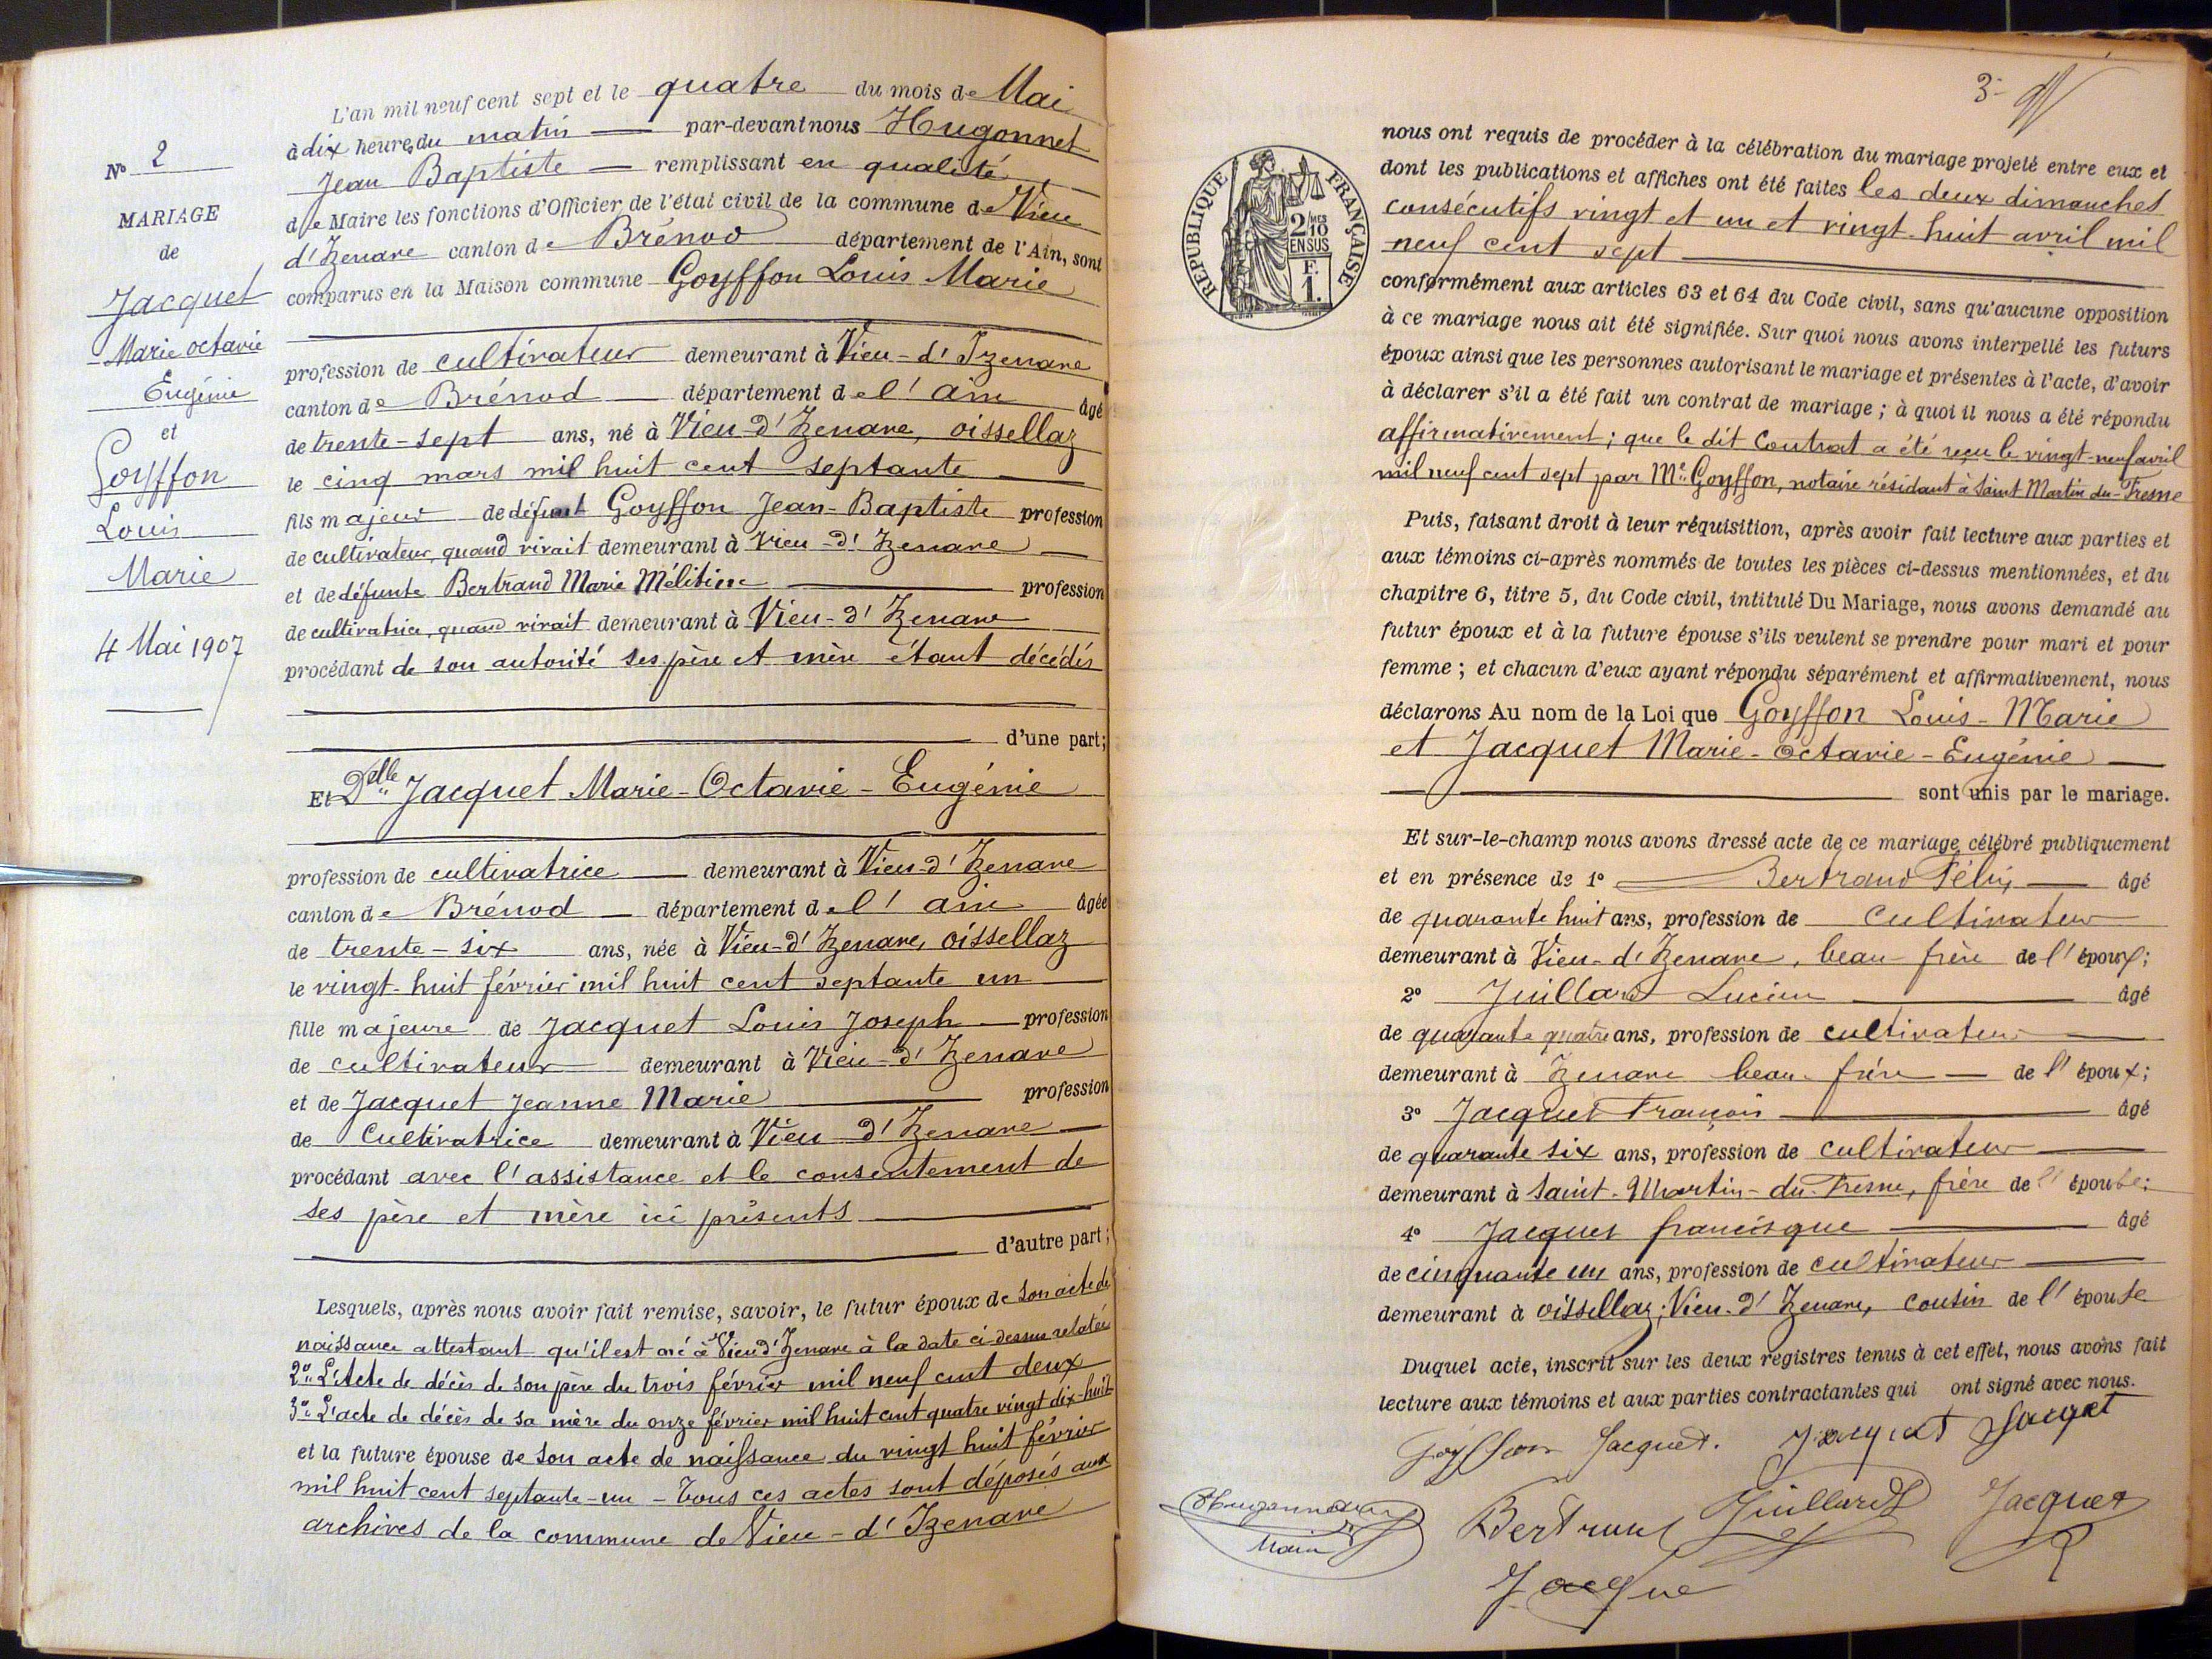 L'an mil neuf cent sept et le quatre du mois de Mai
à dix heures du matin par-devant nous Hugonnet
Jean Baptiste remplissant en qualité
de Maire les fonctions d'Officier de l'état civil de la commune de Vieu
d'Izenave canton de Brénod département de l'Ain, sont
comparus en la Maison commune Goyffon Louis Marie
profession de cultivateur demeurant à Vieu-d'Izenave
canton de Brénod département de l'Ain âgé
de trente-sept ans, né à Vieu-d'Izenave, oissellaz
le cinq mars mil huit cent septante
fils majeur de défunt Goyffon Jean-Baptiste profession
de cultivateur, quand vivait demeurant à Vieu-d'Izenave
et de défunte Bertrand Marie Mélitine profession
de cultivatrice, quand vivait demeurant à Vieu-d'Izenave
procédant de son autorité ses père et mère étant décédés
d'une part;
Et Delle Jacquet Marie-Octavie-Eugénie
profession de cultivatrice demeurant à Vieu-d'Izenave
canton de Brénod département de l'Ain âgée
de trente-six ans, née à Vieu-d'Izenave, oissellaz
le vingt-huit février mil huit cent septante un
fille majeure de Jacquet Louis Joseph profession
de cultivateur demeurant à Vieu-d'Izenave
et de Jacquet Jeanne Marie profession
de Cultivatrice demeurant à Vieu d'Izenave
procédant avec l'assistance et le consentement de
ses père et mère ici présents
d'autre part;
Lesquels, après nous avoir fait remise, savoir, le futur époux de son acte de
naissance attestant qu'il est né à Vieu d'Izenave à la date ci-dessus relatée
2° L'Acte de décès de son père du trois février mil neuf cent deux
3° L'acte de décès de sa mère du onze février mil huit cent quatre vingt dix-huit
et la future épouse de son acte de naissance du vingt huit février
mil huit cent septante-un - Tous ces actes sont déposés aux
archives de la commune de Vieu-d'Izenave
N° 2
MARIAGE
de
Jacquet
Marie octavie
Eugénie
et
Goyffon
Louis
Marie
4 Mai 1907
3
RÉPUBLIQUE FRANÇAISE
2/10 MES
EN SUS
F.
1.
nous ont requis de procéder à la célébration du mariage projeté entre eux et
dont les publications et affiches ont été faites les deux dimanches
consécutifs vingt et un et vingt-huit avril mil
neuf cent sept
conformément aux articles 63 et 64 du Code civil, sans qu'aucune opposition
à ce mariage nous ait été signifiée. Sur quoi nous avons interpellé les futurs
époux ainsi que les personnes autorisant le mariage et présentes à l'acte, d'avoir
à déclarer s'il a été fait un contrat de mariage; à quoi il nous a été répondu
affirmativement; que le dit Contrat a été reçu le vingt-neuf avril
mil neuf cent sept par Me Goyffon, notaire résidant à Saint Martin du-Fresne
Puis, faisant droit à leur réquisition, après avoir fait lecture aux parties et
aux témoins ci-après nommés de toutes les pièces ci-dessus mentionnées, et du
chapitre 6, titre 5, du Code civil, intitulé Du Mariage, nous avons demandé au
futur époux et à la future épouse s'ils veulent se prendre pour mari et pour
femme; et chacun d'eux ayant répondu séparément et affirmativement, nous
déclarons Au nom de la Loi que Goyffon Louis-Marie
et Jacquet Marie-Octavie-Eugénie
sont unis par le mariage.
Et sur-le-champ nous avons dressé acte de ce mariage célébré publiquement
et en présence de 1° Bertrand Félix âgé
de quarante huit ans, profession de Cultivateur
demeurant à Vieu-d'Izenave, beau-frère de l'époux;
2° Juillard Lucien âgé
de quarante quatre ans, profession de cultivateur
demeurant à Izenave beau-frère de l'époux;
3° Jacquet François âgé
de quarante six ans, profession de cultivateur
demeurant à Saint-Martin-du-Fresne, frère de l'épouse;
4° Jacquet francisque âgé
de cinquante un ans, profession de cultivateur
demeurant à oissellaz; Vieu-d'Izenave, cousin de l'épouse
Duquel acte, inscrit sur les deux registres tenus à cet effet, nous avons fait
lecture aux témoins et aux parties contractantes qui ont signé avec nous.
Goyffon Jacquet. Jacquet Jacquet
Hugonnet Bertrand Juillard Jacquet
Maire
Jacque